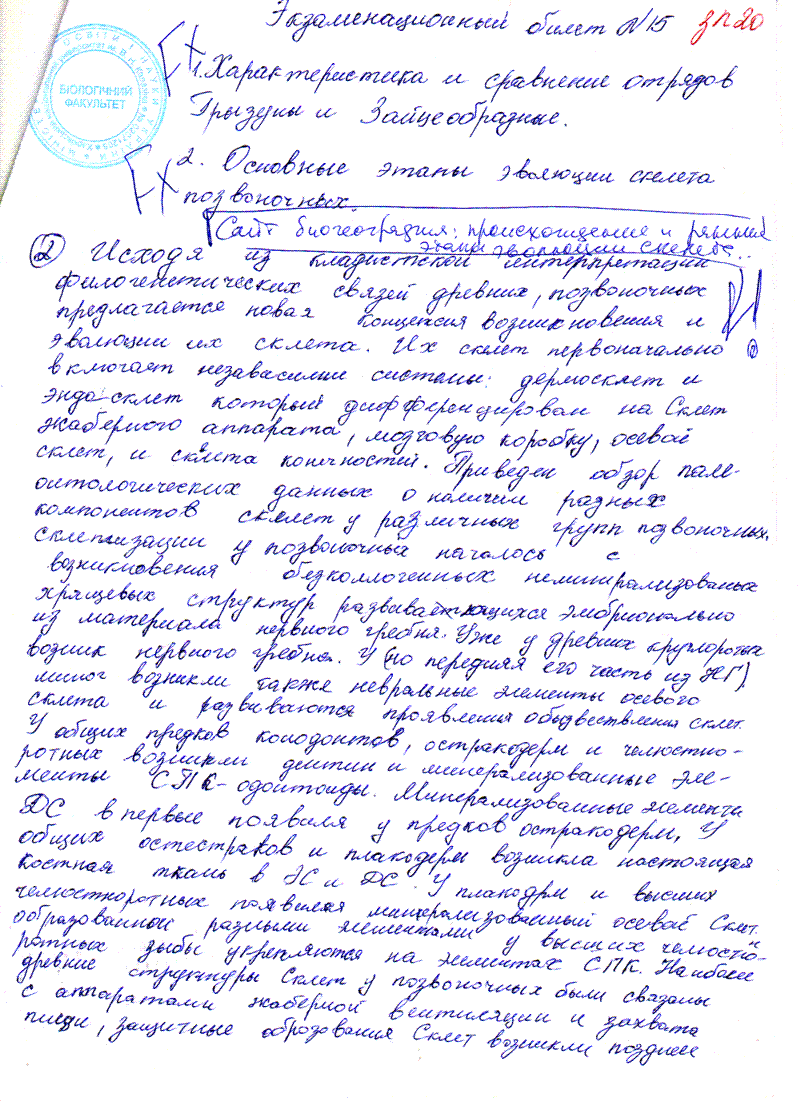 Экзаменационный билет №15 зп20
Fx
1. Характеристика и сравнение отрядов
Грызуны и Зайцеобразные.
БІОЛОГІЧНИЙ
ФАКУЛЬТЕТ
Fx
2. Основные этапы эволюции скелета
позвоночных.
Сайт биогеография: происхождение и ранний
этапы эволюции скелета..
② Исходя из кладистской интерпретации
филогенетических связей древних, позвоночных
предлагается новая концепсия возникновения и
эволюции их склета. Их склет первоначально
включает незавасимии системы: дермосклет и
эндосклет который дифференцирован на Склет
жаберного аппарата, мозговую коробку, осевой
склет, и склета конечностей. Приведен обзор пале-
онтологических данных о наличии разных
компонентов склелет у различных групп позвоночных.
Склетизации у позвоночных началось с
возникновения безколлогенных неминирализованых
хрящевых структур развивающихся эмбрионально
из материала нервного гребня. Уже у древних круглоротых
возник нервного гребня. У (но передняя его часть из НГ).
миног возникли также невральные элементы осевого
склета и развиваются проявления обызвествления склет.
У общих предков конодонтов, остракодерм и челюстно-
ротных возникли дентин и минерализованные эле-
менты СПК-одонтоиды. Минерализованные элементы
ДС впервые появиля у предков остракодерм. У
общих остестраков и плакодерм возникла настоящая
костная ткань в ЭС и ДС. У плакодрм и высших
челюстноротных появился минерализованный осевой Склет.
образованной разными элементами у высших челюстно-
ротных зыбы укрепляются на элементах СПК. Наиболее
древние структуры Склет у позвоночных были связаны
с аппаратами жаберной вентиляции и захвата
пищи, защитные оброзования Склет возникли позднее